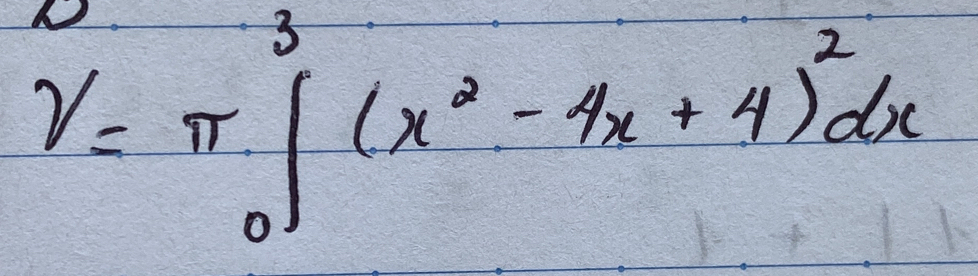 V = π ∫₀³ (x² - 4x + 4)² dx